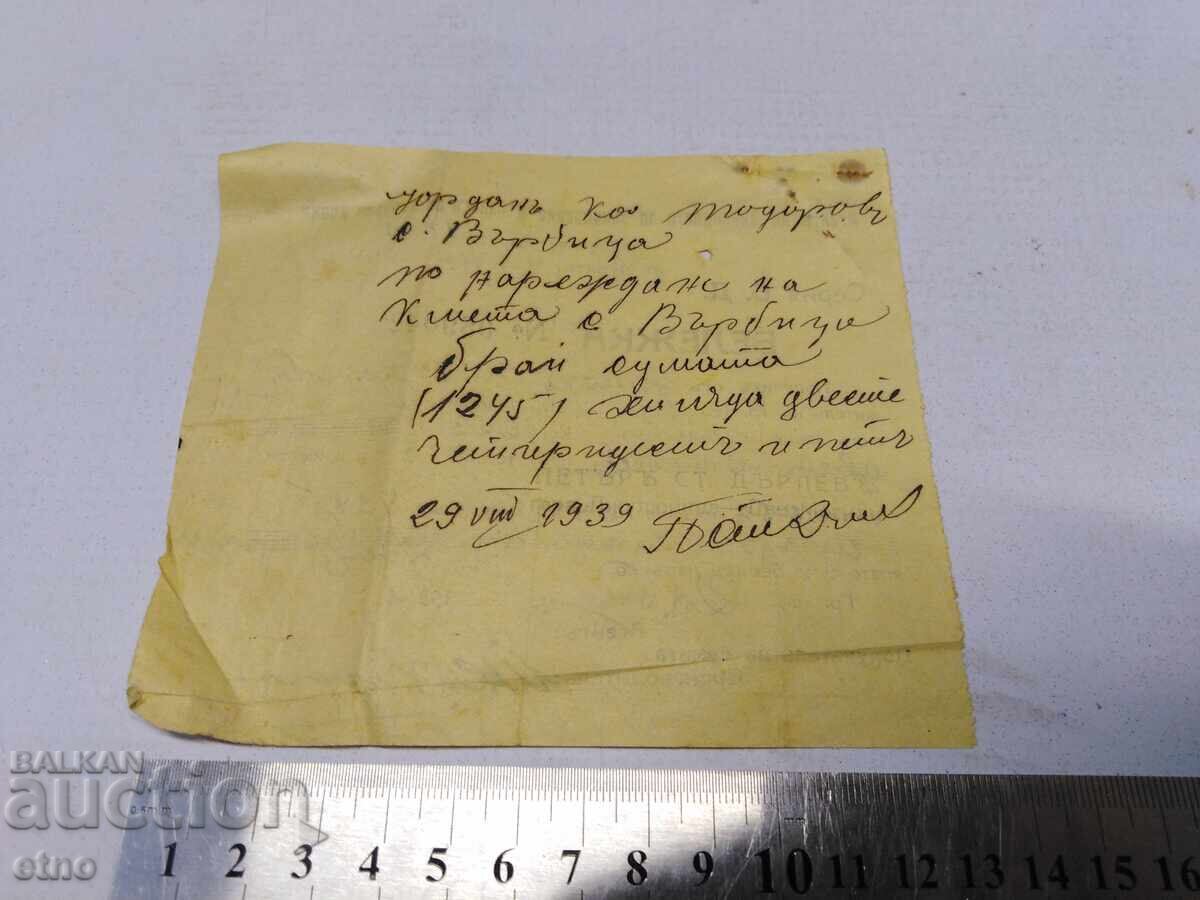 Юрданъ Ко. Тодоровъ
с. Върбица
по нареждан на
Кмета с Върбица
брой сумата
(1245) хиляда двесте
четиридесетъ и петъ
29 VIII 1939
BALKAN
auction
etno
0.5mm
1 2 3 4 5 6 7 8 9 10 11 12 13 14 15 16